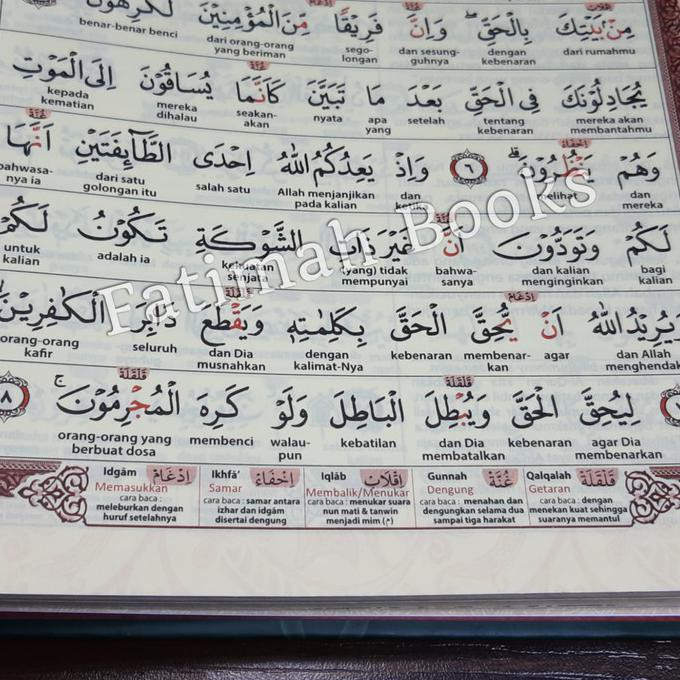 مِنْۢ بَيْتِكَ بِالْحَقِّۖ وَاِنَّ فَرِيْقًا مِّنَ الْمُؤْمِنِيْنَ لَكٰرِهُوْنَ
dari rumahmu dengan kebenaran dan sesung-guhnya sego-longan dari orang-orang yang beriman benar-benar benci
يُجَادِلُوْنَكَ فِى الْحَقِّ بَعْدَ مَا تَبَيَّنَ كَاَنَّمَا يُسَاقُوْنَ اِلَى الْمَوْتِ
mereka akan membantahmu tentang kebenaran setelah apa yang nyata seakan-akan mereka dihalau kepada kematian
وَهُمْ يَنْظُرُوْنَۗ ٦ وَاِذْ يَعِدُكُمُ اللّٰهُ اِحْدَى الطَّاۤىِٕفَتَيْنِ اَنَّهَا
dan mereka melihat dan Allah menjanjikan pada kalian salah satu dari satu golongan itu bahwasa-nya ia
لَكُمْ وَتَوَدُّوْنَ اَنَّ غَيْرَ ذَاتِ الشَّوْكَةِ تَكُوْنُ لَكُمْ
bagi kalian dan kalian menginginkan bahwa-sanya (yang) tidak mempunyai kekuatan senjata adalah ia untuk kalian
وَيُرِيْدُ اللّٰهُ اَنْ يُّحِقَّ الْحَقَّ بِكَلِمٰتِهٖ وَيَقْطَعَ دَابِرَ الْكٰفِرِيْنَۙ
dan Allah menghendaki agar membenar-kan kebenaran dengan kalimat-Nya dan Dia musnahkan seluruh orang-orang kafir
لِيُحِقَّ الْحَقَّ وَيُبْطِلَ الْبَاطِلَ وَلَوْ كَرِهَ الْمُجْرِمُوْنَۚ ٨
agar Dia membenarkan kebenaran dan Dia membatalkan kebatilan walau-pun membenci orang-orang yang berbuat dosa
Fatimah Books
Idgâm اِدْغَامْ Ikhfâ' اِخْفَاءْ Iqlâb اِقْلَابْ Gunnah غُنَّةْ Qalqalah قَلْقَلَةْ
Memasukkan Samar Membalik/Menukar Dengung Getaran
cara baca : meleburkan dengan huruf setelahnya
cara baca : samar antara izhar dan idgâm disertai dengung
cara baca : menukar suara nun mati & tanwin menjadi mim (م)
cara baca : menahan dan dengungkan selama dua sampai tiga harakat
cara baca : dengan menekan kuat sehingga suaranya memantul